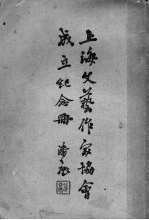 上海文藝作家協會
成立紀念冊